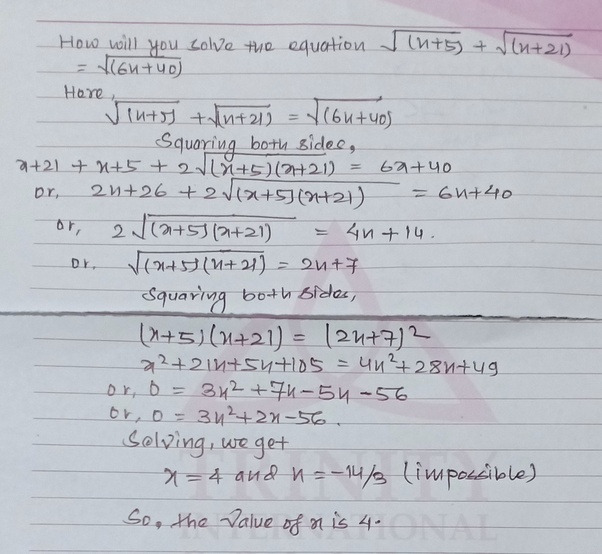 How will you solve the equation √(x+5) + √(x+21)
= √(6x+40)
Here,
√(x+5) + √(x+21) = √(6x+40)
Squaring both sides,
x+21 + x+5 + 2√(x+5)(x+21) = 6x+40
or, 2x+26 + 2√(x+5)(x+21) = 6x+40
or, 2√(x+5)(x+21) = 4x+14.
or. √(x+5)(x+21) = 2x+7
Squaring both sides,
(x+5)(x+21) = (2x+7)²
x²+21x+5x+105 = 4x²+28x+49
or, 0 = 3x²+7x-5x-56
or, 0 = 3x²+2x-56.
Solving, we get
x=4 and x=-14/3 (impossible)
TRINITY
So, the value of x is 4.
INTERNATIONAL